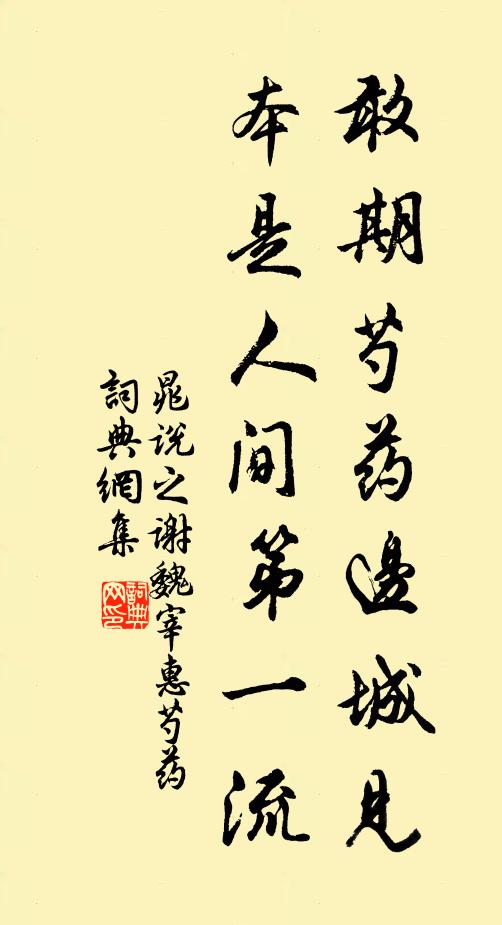 敢期芍药邊城見
本是人间第一流
晁说之谢魏宰惠芍药
詞典網集
詞典网印